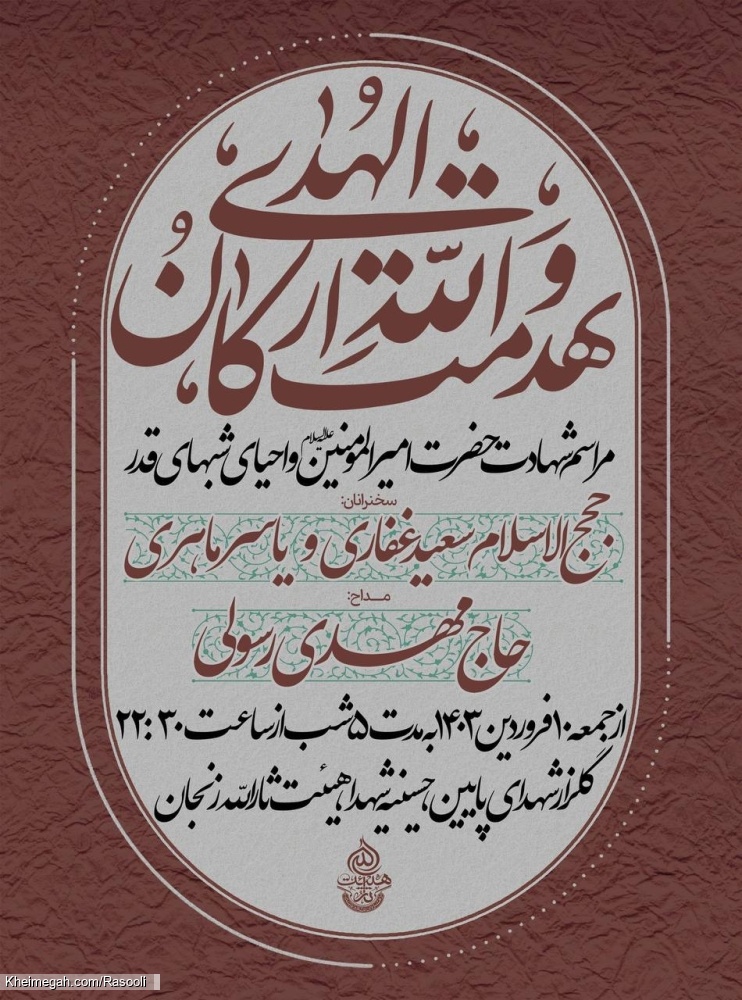 تهدمت والله ارکان الهدی
مراسم شهادت حضرت امیرالمومنین علیه‌السلام و احیای شبهای قدر
سخنرانان:
حجج الاسلام سعید غفاری و یاسر ماهری
مداح:
حاج مهدی رسولی
از جمعه ۱۰ فروردین ۱۴۰۳ به مدت ۵ شب از ساعت ۲۲:۳۰
گلزار شهدای پایین، حسینیه شهدا هیئت ثارالله زنجان
Kheimegah.com/Rasooli